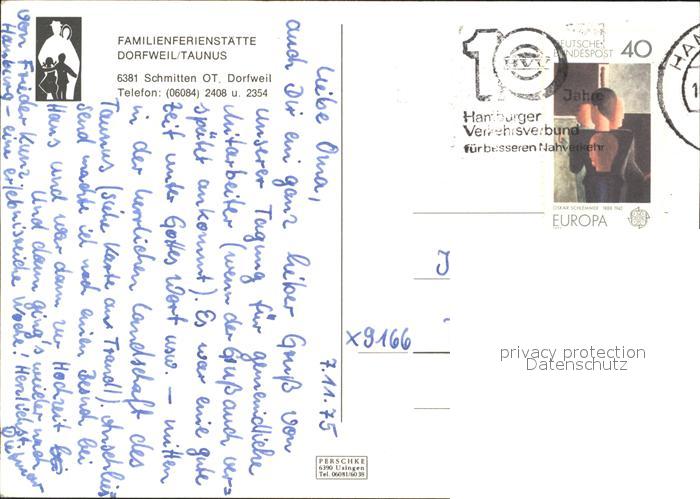 FAMILIENFERIENSTÄTTE
DORFWEIL/TAUNUS
6381 Schmitten OT. Dorfweil
Telefon: (06084) 2408 u. 2354
7.11.75
Liebe Oma,
auch Dir ein ganz lieber Gruß von
unserer Tagung für gemeindliche
Mitarbeiter (wenn der Gruß auch ver=
spätet ankommt). Es war eine gute
Zeit unter Gottes Wort usw. – mitten
in der herrlichen Landschaft des
Taunus (siehe Karte am Rand!). Anschlies=
send machte ich noch einen Besuch bei
Hans und war dann zur Hochzeit bei
von Frieder Kunz. Und dann ging's wieder nach
Hamburg – eine erlebnisreiche Woche! Herzlichst
PERSCHKE
6390 Usingen
Tel. 06081/6038
10
HVV
Jahre
Hamburger
Verkehrsverbund
für besseren Nahverkehr
HAM
DEUTSCHE
BUNDESPOST
40
OSKAR SCHLEMMER 1888-1943
EUROPA
J
x9166
privacy protection
Datenschutz